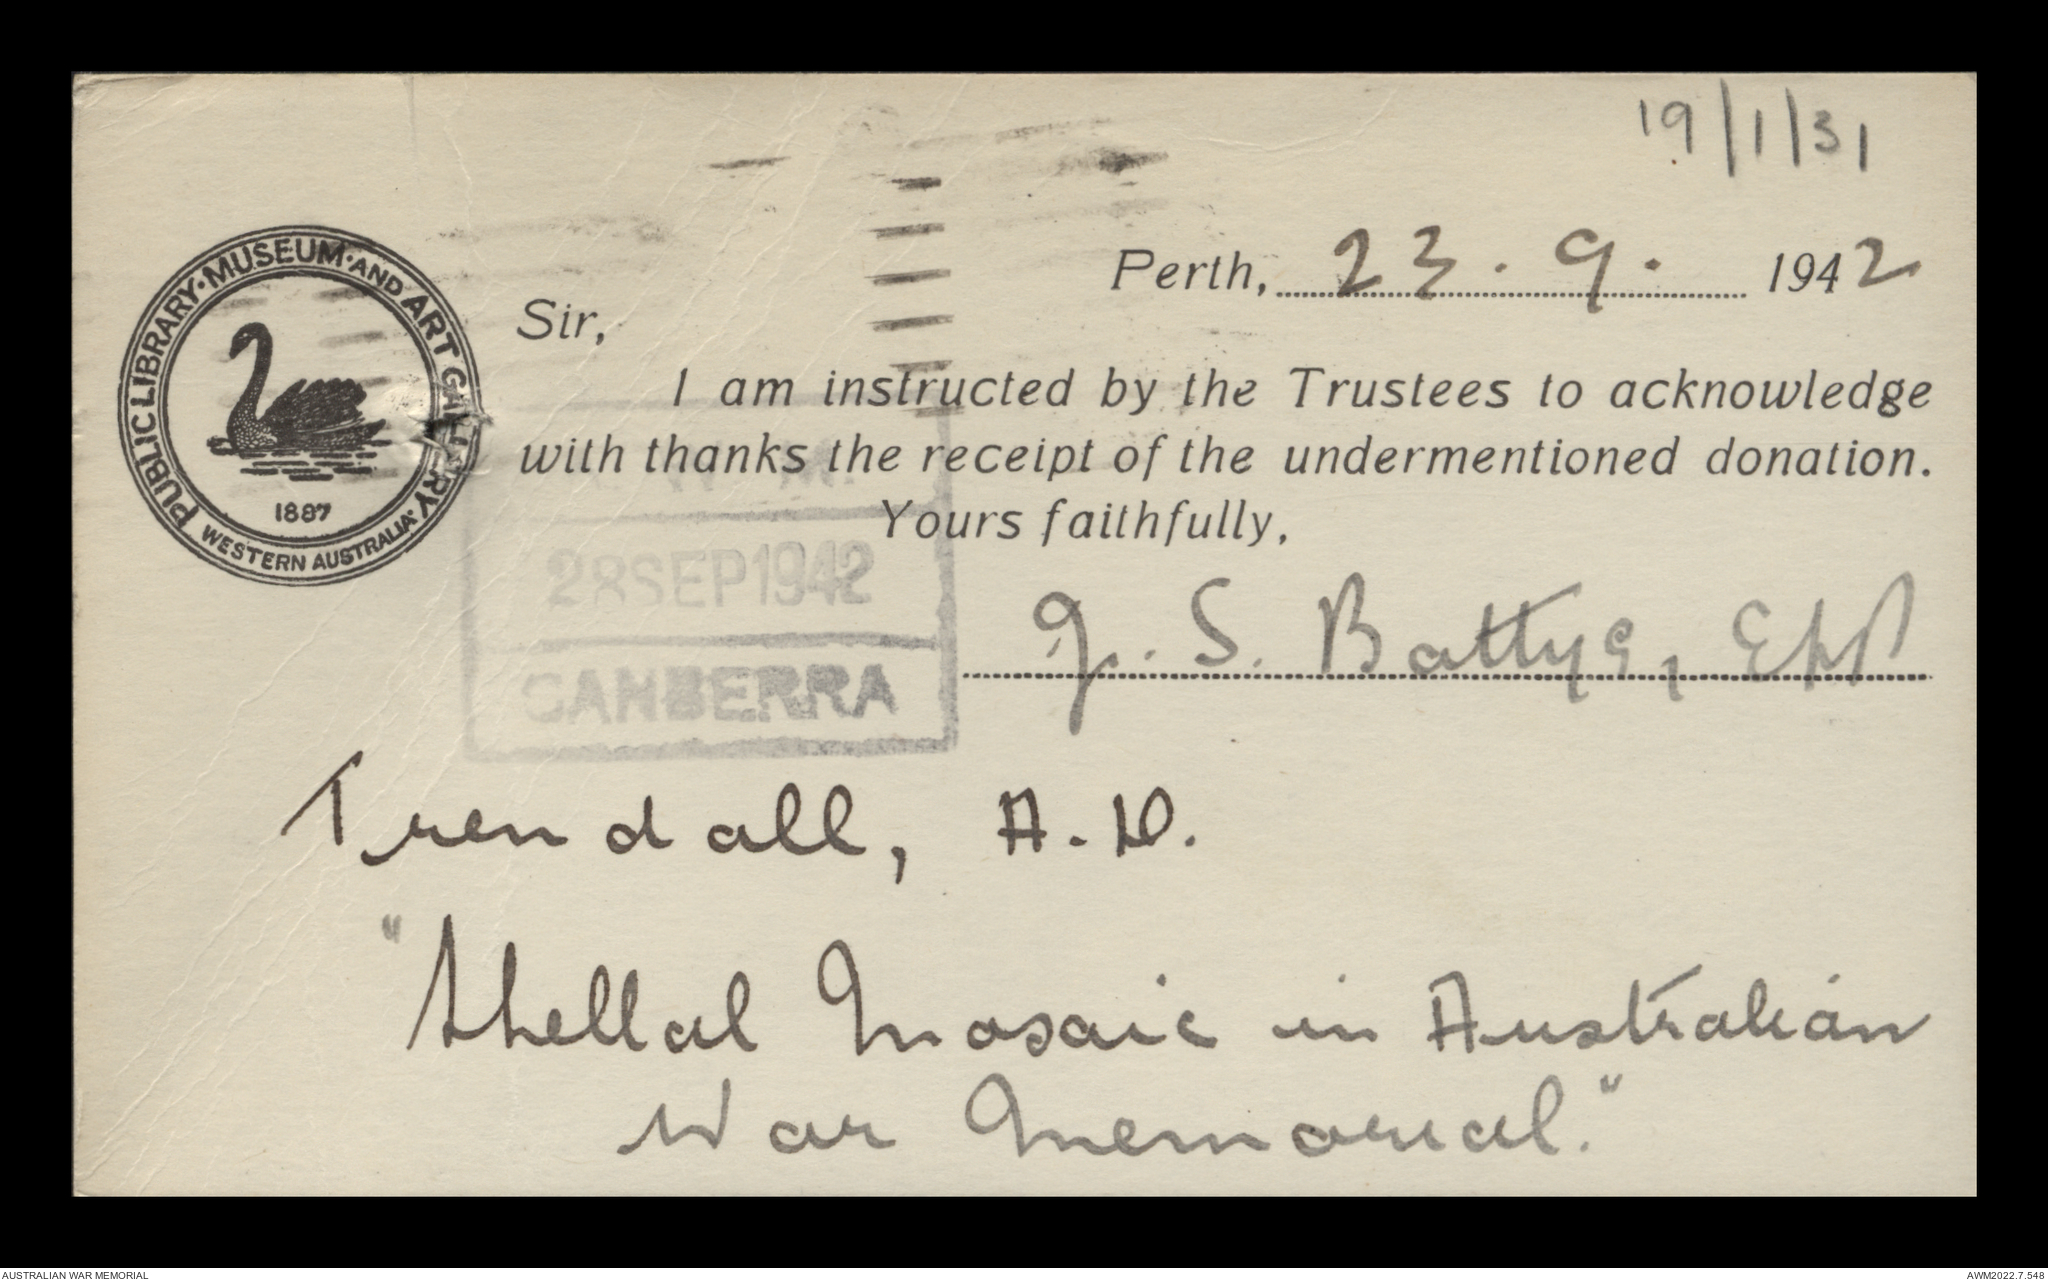 19/1/31
PUBLIC LIBRARY · MUSEUM · AND ART GALLERY
WESTERN AUSTRALIA
1887
Perth, 23. 9. 1942
Sir,
I am instructed by the Trustees to acknowledge
with thanks the receipt of the undermentioned donation.
Yours faithfully,
28 SEP 1942
CANBERRA
J. S. Battye,
Trendall, A. D.
"Shellal Mosaic in Australian
War Memorial."
AUSTRALIAN WAR MEMORIAL
AWM2022.7.548